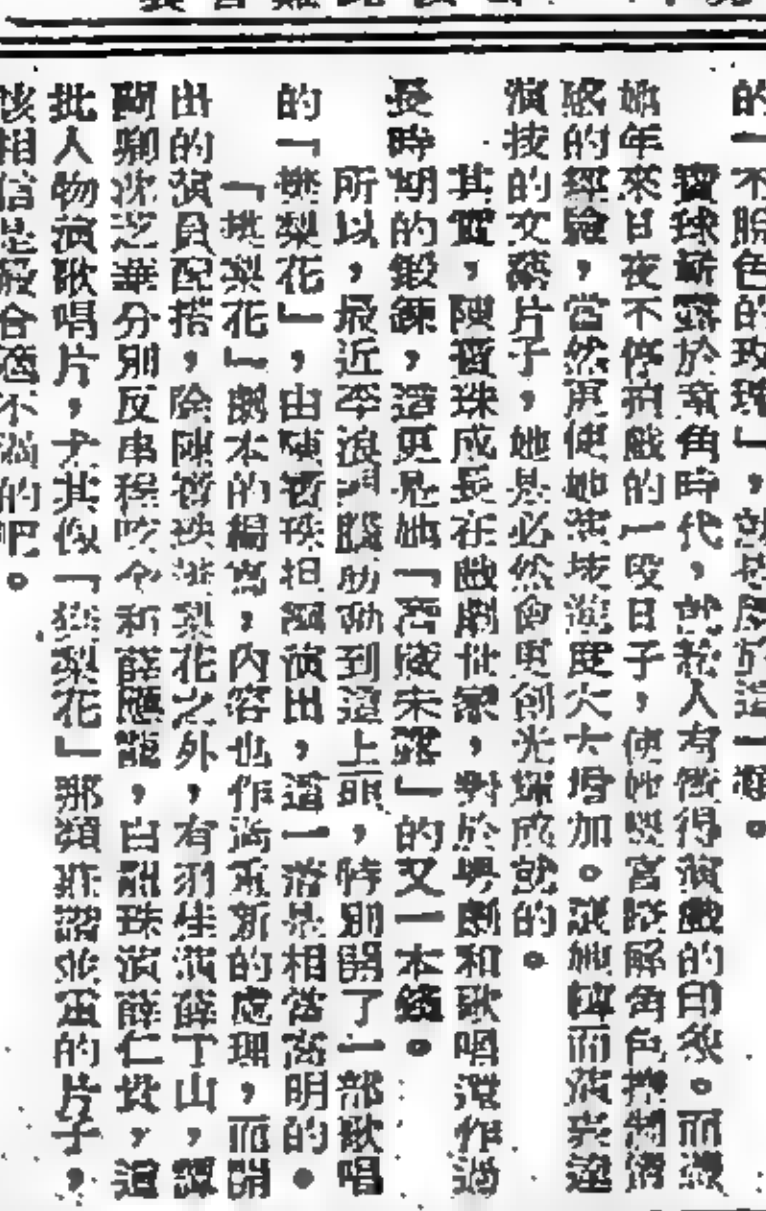 的「不脫色的玫瑰」，就是屬於這一類。
寶珠嶄露於童角時代，就給人有懂得演戲的印象。而
她年來日夜不停拍戲的一段日子，使她豐富
的經驗，當然更使她演技進度大大增加。
演技的文藝片子，她是必然會更創光輝成就的。
其實，陳寶珠成長在戲劇世家，對於粵劇和歌唱還作過
長時期的鍛鍊，這更是她「寶藏未露」的又一本錢。
所以，最近動到這上頭，特別開了一部歌唱
的「樊梨花」，由陳寶珠担綱演出，這一着是相當高明的。
「樊梨花」劇本的編寫，內容也作過重新的處理，而開
出的演員配搭，除陳寶珠樊梨花之外，有演薛丁山，譚
沈芝華分別反串程咬金和薛應龍，白龍珠演薛仁貴，這
批人物演歌唱片，尤其似「樊梨花」那類的片子，
該相信是最合適不過的吧。